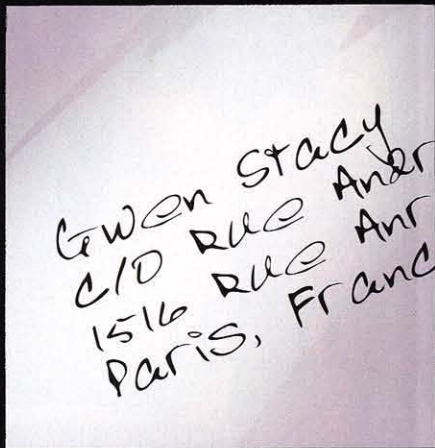 Gwen Stacy
C/O RUE Andr
1516 RUE Anr
Paris, Franc